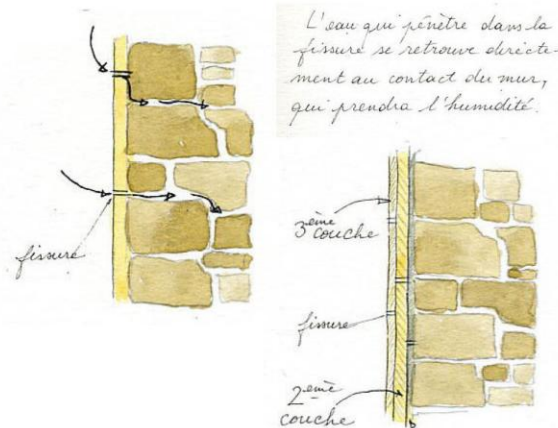 L'eau qui pénètre dans la
fissure se retrouve directe-
ment au contact du mur,
qui prendra l'humidité.
fissure
3ème
couche
fissure
2ème
couche